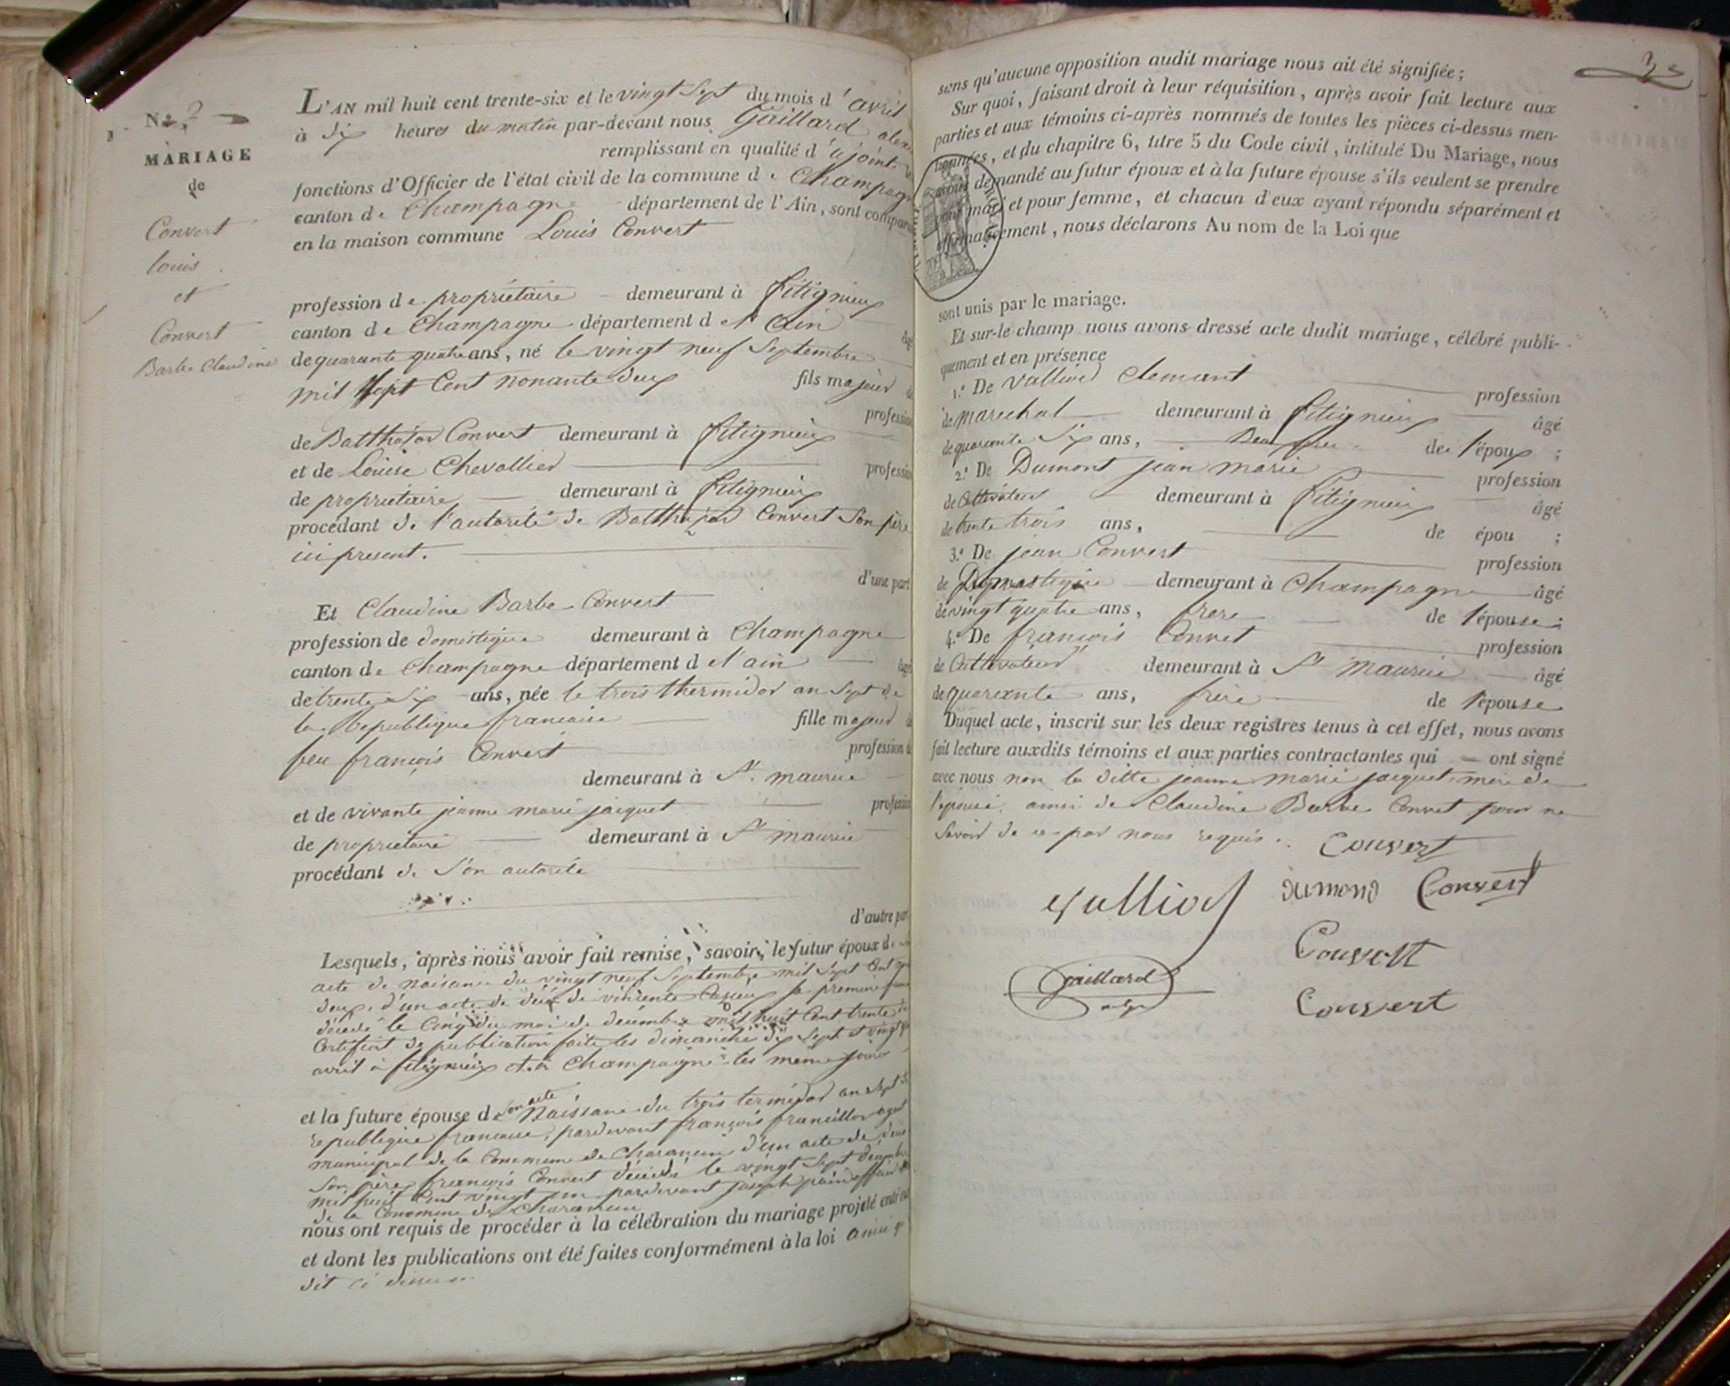 N.° 2
MARIAGE
de
Convert
louis
et
Convert
Barbe Claudine
L'AN mil huit cent trente-six et le vingt Sept du mois d'avril
à dix heures du matin par-devant nous Gaillard
remplissant en qualité d'ajoint
fonctions d'Officier de l'état civil de la commune de Champagne
canton de Champagne département de l'Ain, sont comparu
en la maison commune Louis Convert
profession de propriétaire demeurant à fitignieux
canton de Champagne département de l'ain âgé
de quarante quatre ans, né le vingt neuf Septembre
mil Sept Cent nonante deux fils majeur de
profession
de Balthazar Convert demeurant à fitignieux
et de Louise Chevallier profession
de propriétaire demeurant à fitignieux
procédant de l'autorité de Balthazar Convert Son père
ici present.
d'une part
Et Claudine Barbe Convert
profession de domestique demeurant à Champagne
canton de Champagne département de l'ain âgé
de trente Six ans, née le trois thermidor an Sept de
la Republique francaise fille majeur de
feu françois Convert profession d
demeurant à St. maurice
et de vivante jeanne marie jacquet profession
de propriétaire demeurant à St maurice
procédant de Son autorité
d'autre part
Lesquels, après nous avoir fait remise, savoir, le futur époux de
acte de naisance du vingt neuf Septembre mil Sept Cent
deux, d'un acte de de Sa premiere
décédé le Cinq du moi de décembre mil huit Cent trente
Certificat de publication faite les dimanche dix Sept et vingt
avril à fitignieux et à Champagne les meme jours
et la future épouse de Son acte Naissance du trois termidor an Sept
republique francaise, pardevant françois francillon agent
municipal de la Commune de Charancin d'un acte de
Son père françois Convert décédé le vingt Sept
mil huit Cent vingt un pardevant joseph
de la Commune de Charancin
nous ont requis de procéder à la célébration du mariage projeté entre
et dont les publications ont été faites conformément à la loi
dit ci dessus
sans qu'aucune opposition audit mariage nous ait été signifiée;
Sur quoi, faisant droit à leur réquisition, après avoir fait lecture aux
parties et aux témoins ci-après nommés de toutes les pièces ci-dessus men-
tionnées, et du chapitre 6, titre 5 du Code civil, intitulé Du Mariage, nous
avons demandé au futur époux et à la future épouse s'ils veulent se prendre
pour mari et pour femme, et chacun d'eux ayant répondu séparément et
affirmativement, nous déclarons Au nom de la Loi que
sont unis par le mariage.
Et sur-le champ nous avons dressé acte dudit mariage, célébré publi-
quement et en présence
1.° De Valliod Clemant profession
de marechal demeurant à fitignieux âgé
de quarante Six ans, Beaufrere de l'époux ;
2.° De Dumont jean marie profession
de Cultivateur demeurant à fitignieux âgé
de trente trois ans, de épou ;
3.° De jean Convert profession
de Domestique demeurant à Champagne âgé
de vingt quatre ans, frere de l'épouse ;
4.° De françois Convert profession
de Cultivateur demeurant à St maurice âgé
de quarante ans, frère de l'épouse
Duquel acte, inscrit sur les deux registres tenus à cet effet, nous avons
fait lecture auxdits témoins et aux parties contractantes qui ont signé
avec nous non la ditte jeanne marie jacquet mère de
l'épouse ainsi de Claudine Barbe Convert pour ne
Savoir de ce par nous requis.
Convert
Valliod dumond Convert
Convert
Gaillard
Convert